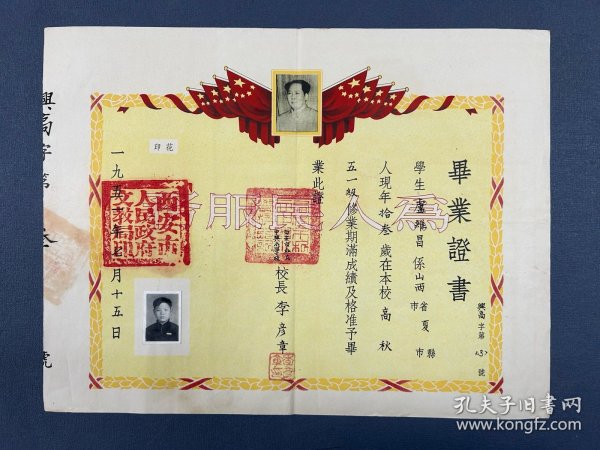 畢業證書
興高字第(3)號
學生盧維昌係山西省夏縣
市市
人現年拾叁歲在本校高秋
五一級修業期滿成績及格准予畢
業此證
校長李彥章
一九五年七月十五日
為人民服務
西安市
人民政府
文教局印
印花
興高字第叁號
孔夫子旧书网
www.kongfz.com